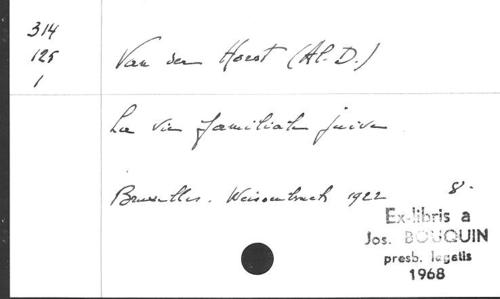 314
125
1
Van den Horst (Al. D.)
La vie familiale juive
Bruxelles. Weissenbruch 1922 8°.
Ex-libris a
Jos. BOUQUIN
presb. legatis
1968